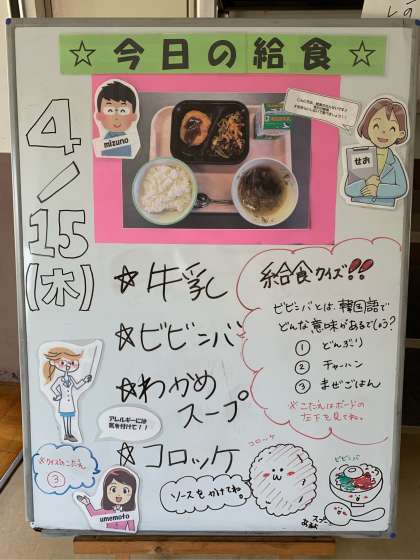 ☆ 今日の給食 ☆
4/15
(木)
mizuno
せお
☆牛乳
☆ビビンバ
☆わかめ
スープ
☆コロッケ
給食クイズ!!
ビビンバとは、韓国語で
どんな意味があるでしょう?
① どんぶり
② チャーハン
③ まぜごはん
※こたえはボードの
左下を見てね。
アレルギーには
気を付けて!!
☆クイズのこたえ
③
umemoto
コロッケ
ソースをかけてね。
ビビンバ